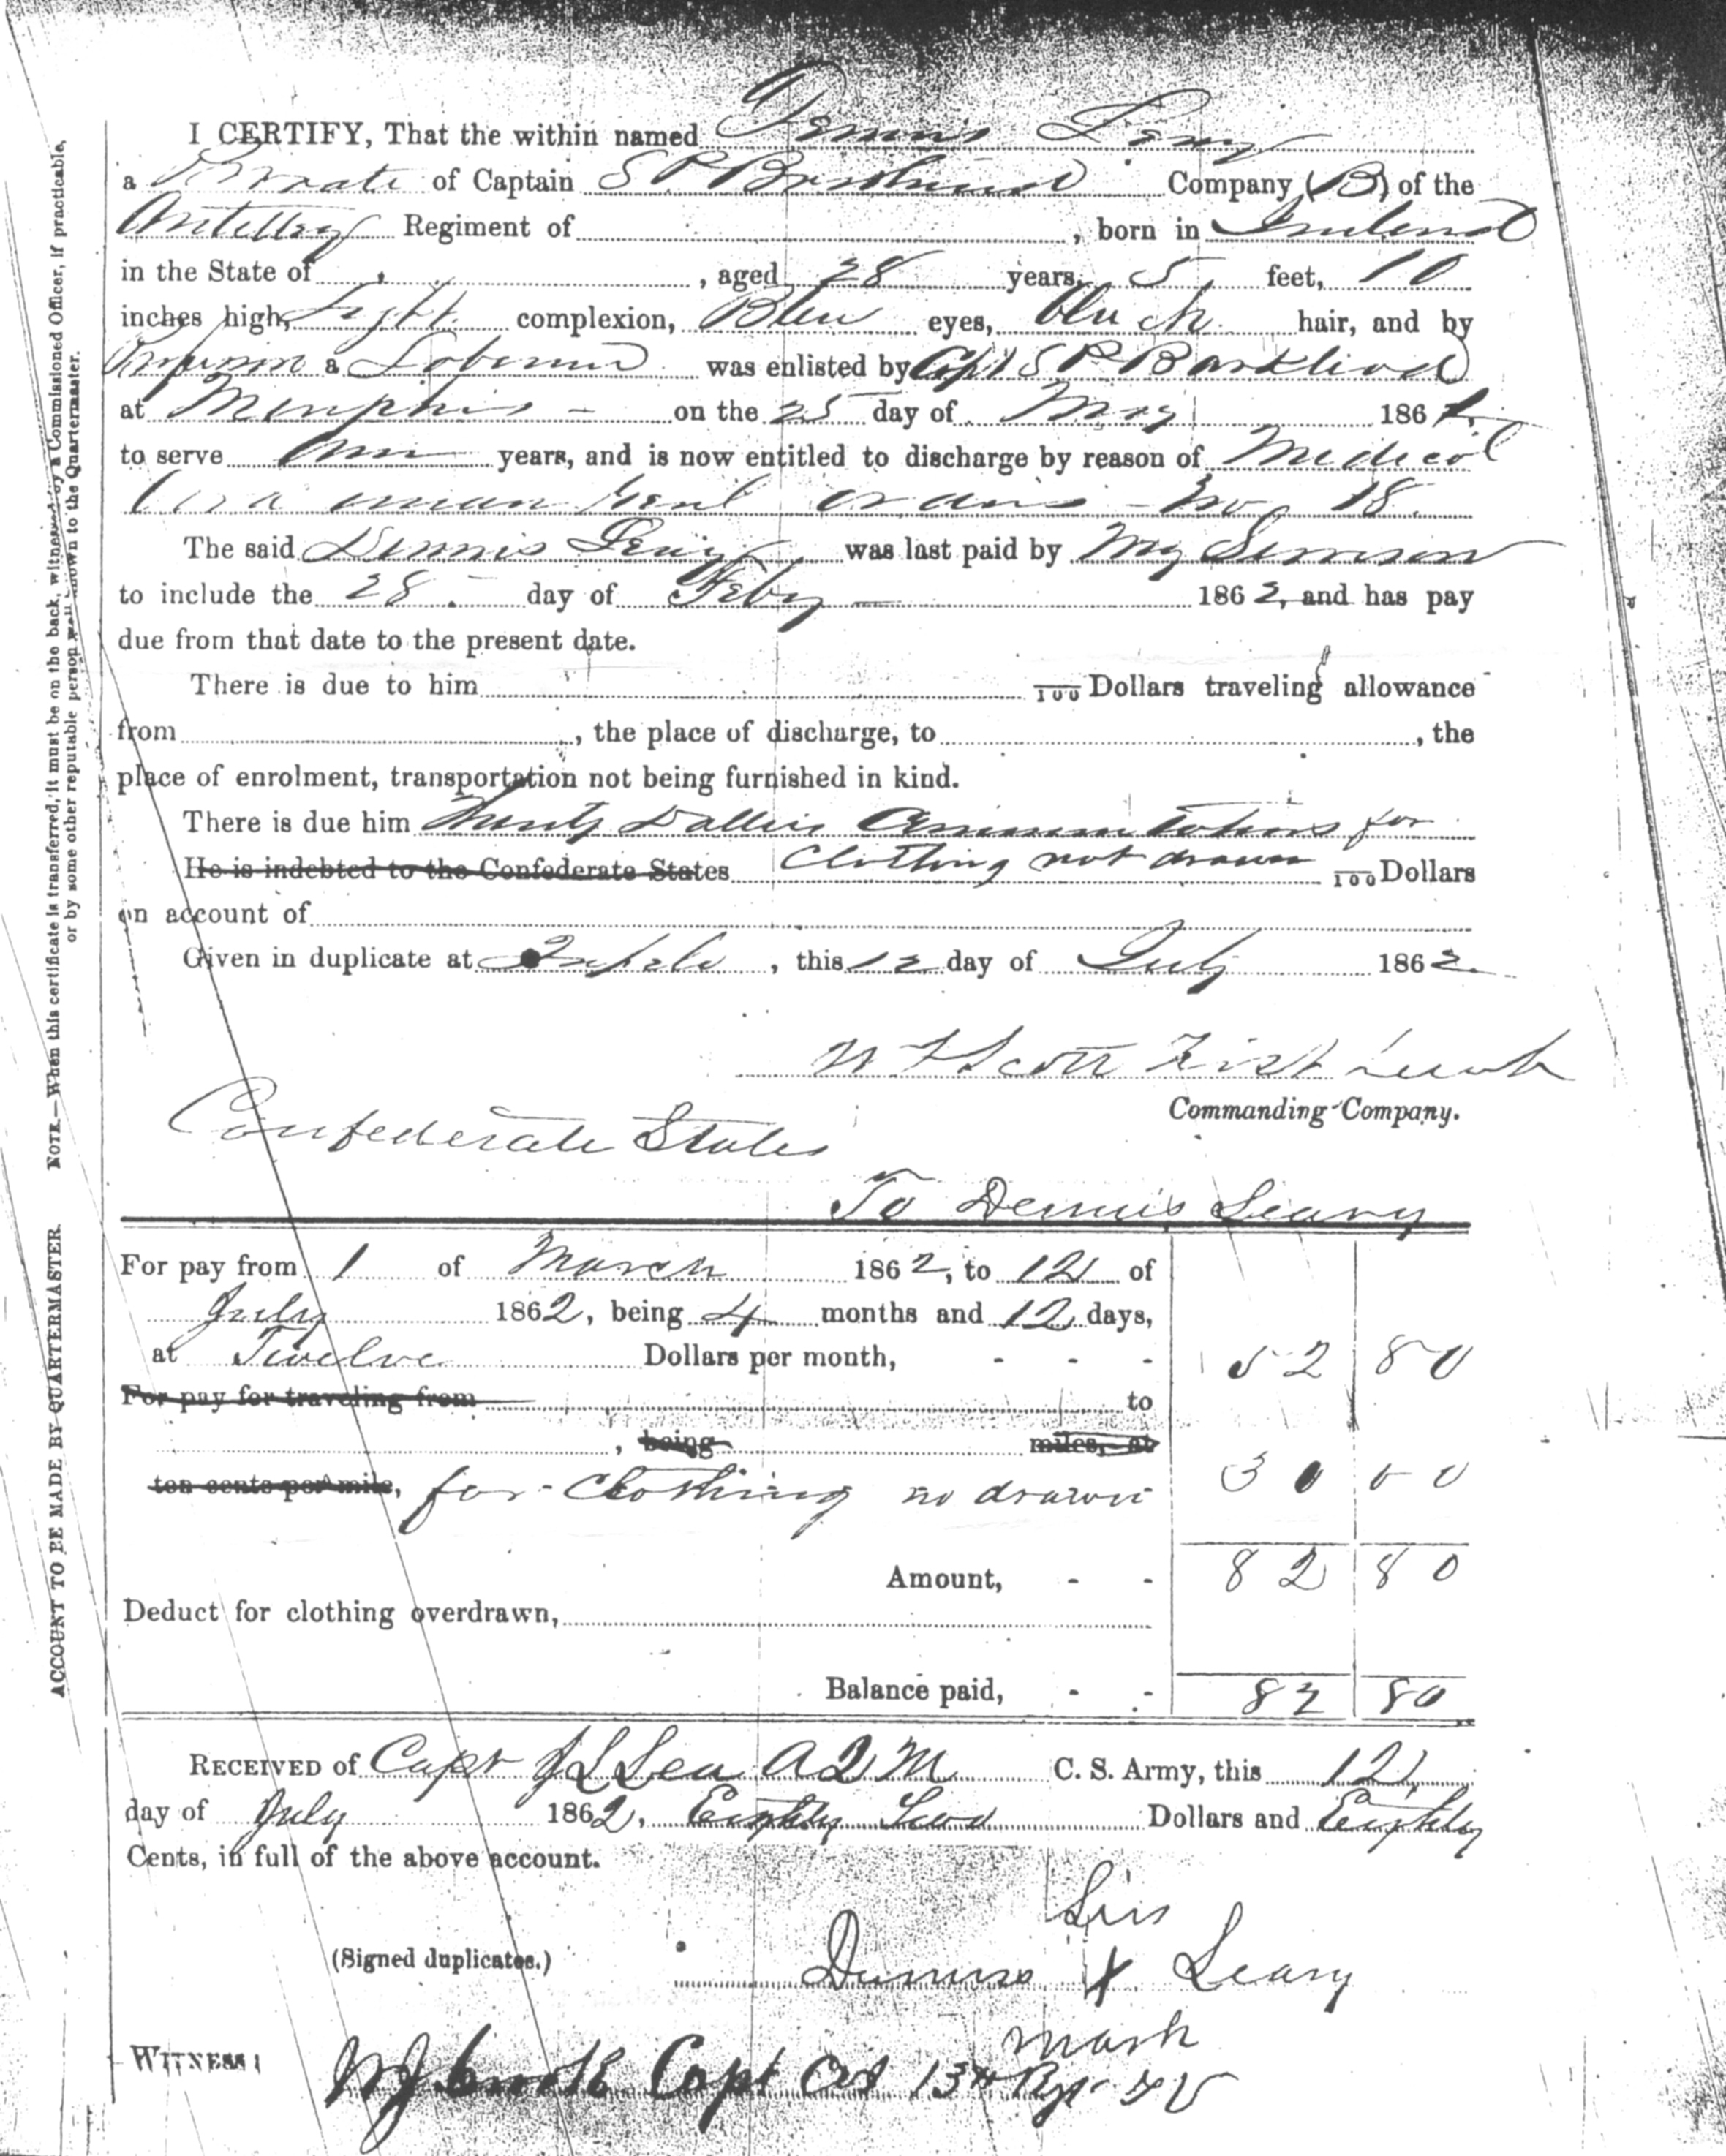 I CERTIFY, That the within named Dennis Leary
a Private of Captain S P Bankhead Company (B) of the
Artillery Regiment of , born in Ireland
in the State of , aged 28 years, 5 feet, 10
inches high, Light complexion, Blew eyes, black hair, and by
a was enlisted by Capt S P Bankhead
at Memphis on the 25 day of May 1861,
to serve years, and is now entitled to discharge by reason of Medical
orders No 18
The said Dennis Leary was last paid by
to include the 28 day of Feby 1862, and has pay
due from that date to the present date.
There is due to him 100 Dollars traveling allowance
from , the place of discharge, to , the
place of enrolment, transportation not being furnished in kind.
There is due him Dollars for
He is indebted to the Confederate States Clothing not drawn 100 Dollars
on account of
Given in duplicate at Tupelo, this 12 day of July 1862.
Scott First Lieut
Commanding Company.
Confederate States
To Dennis Leary
For pay from 1 of March 1862, to 12 of
July 1862, being 4 months and 12 days,
at Twelve Dollars per month, - - - 52 80
For pay for traveling from to
, being miles, at
ten cents per mile, for Clothing no drawn 30 00
Amount, - - 82 80
Deduct for clothing overdrawn,
Balance paid, - - 82 80
RECEIVED of Capt J L Lea A Q M C. S. Army, this 12
day of July 1862, Eighty Two Dollars and Eighty
Cents, in full of the above account.
his
(Signed duplicates.) Dennis X Leary
mark
WITNESS: Capt 13th
NOTE.—When this certificate is transferred, it must be on the back, witnessed by a Commissioned Officer, if practicable,
or by some other reputable person well known to the Quartermaster.
ACCOUNT TO BE MADE BY QUARTERMASTER